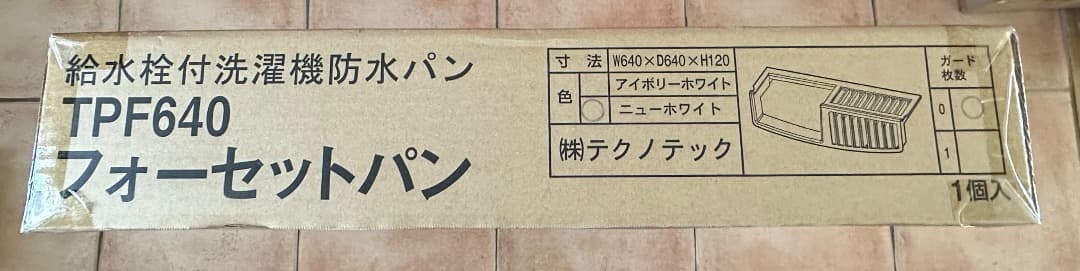 給水栓付洗濯機防水パン
TPF640
フォーセットパン
寸 法 W640×D640×H120
色 アイボリーホワイト
ニューホワイト
㈱テクノテック
ガード
枚数
0
1
1個入